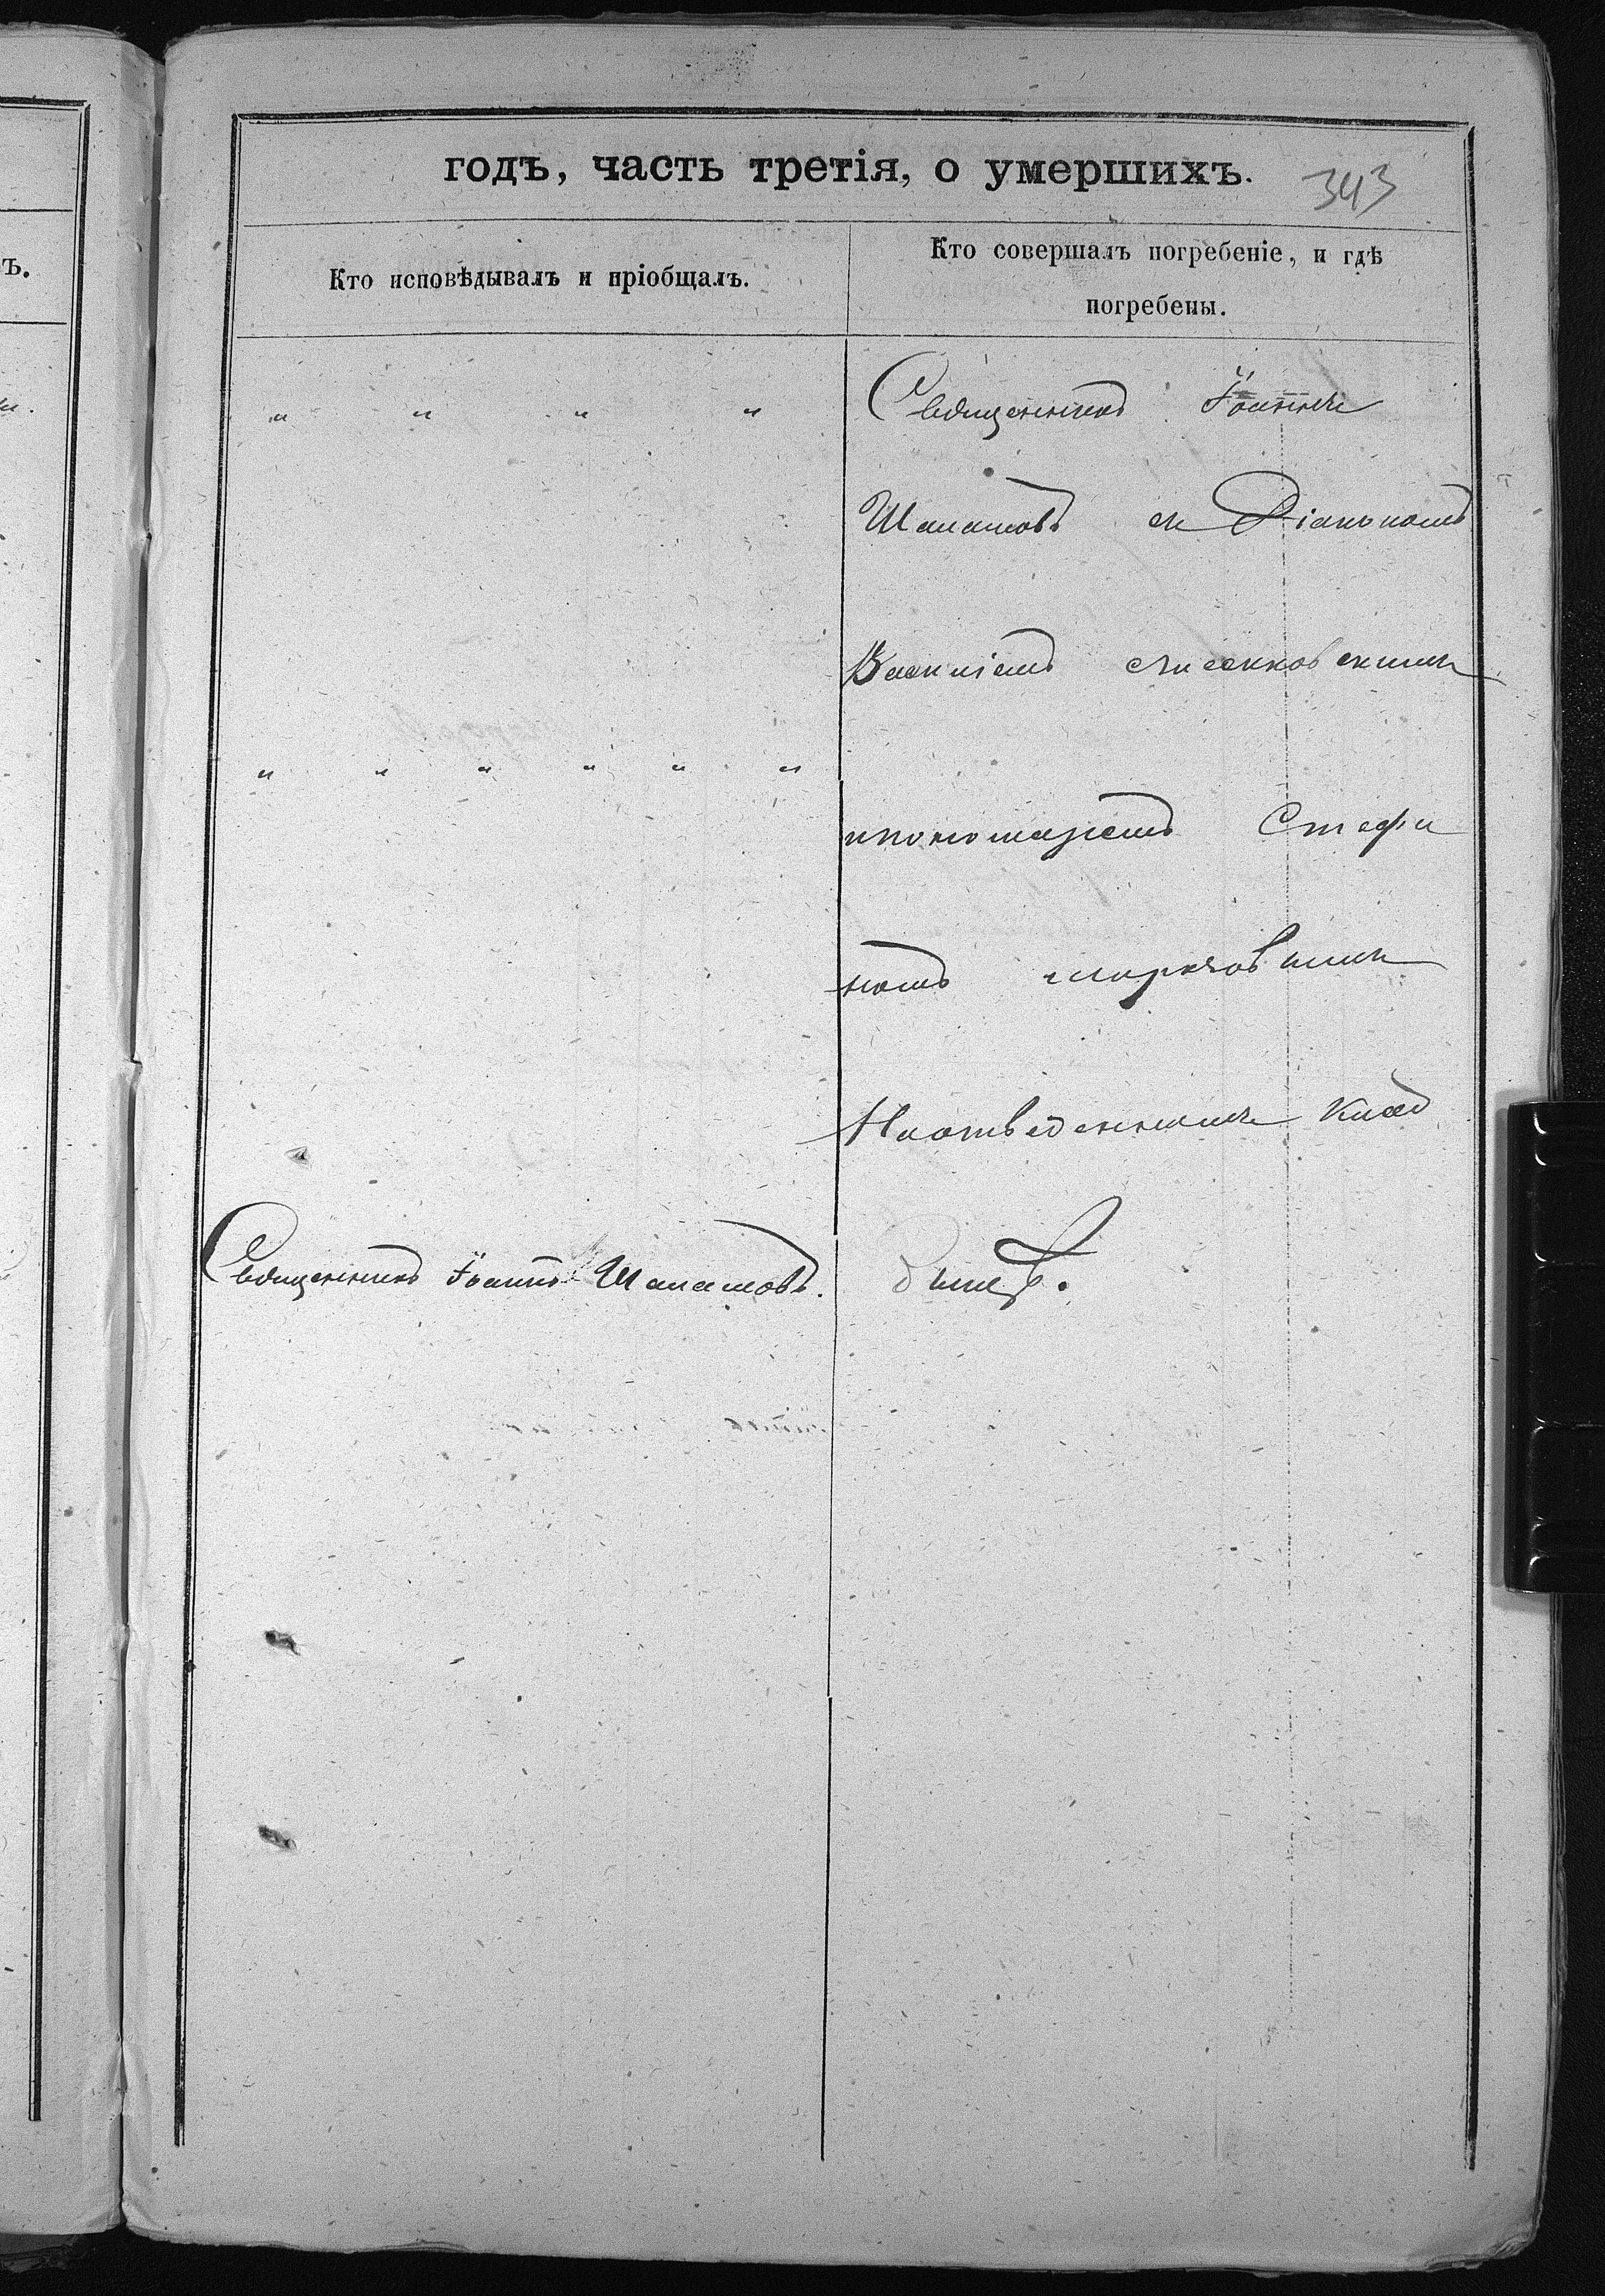 годъ, часть третія, о умершихъ.
343
Кто исповѣдывалъ и пріобщалъ.
Кто совершалъ погребеніе, и гдѣ
погребены.
" " " "
Священникъ Іоаннъ
Шалатовъ съ Діакономъ
Василіемъ
" " " " " "
и пономаремъ Стефа
номъ
На отведенномъ клад
Священникъ Іоаннъ Шалатовъ.
бищѣ.